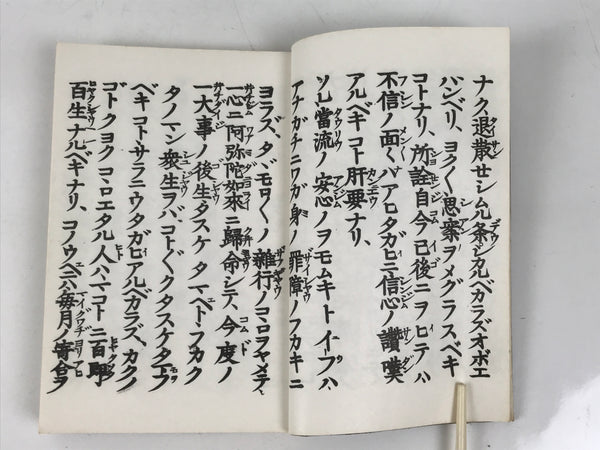 ナク退散セシムル条シカルベカラズオボエ
ハンベリ、ヨク〳〵思案ヲメグラスベキ
コトナリ、所詮自今已後ニヲヒテハ
不信ノ面々ハアヒタガヒニ信心ノ讃嘆
アルベキコト肝要ナリ、
ソレ当流ノ安心ノヲモムキトイフハ
アナガチニワガ身ノ罪障ノフカキニ
ヨラズ、タヾモロ〳〵ノ雑行ノコヽロヲヤメテ、
一心ニ阿弥陀如来ニ歸命シテ、今度ノ
一大事ノ後生タスケタマヘトフカク
タノマン衆生ヲバコト〴〵クタスケタマフ
ベキコトサラニウタガヒアルベカラズ、カクノ
ゴトクヨクコヽロエタル人ハマコトニ百即
百生ナルベキナリ、コノウヘニハ毎月ノ寄合ヲ